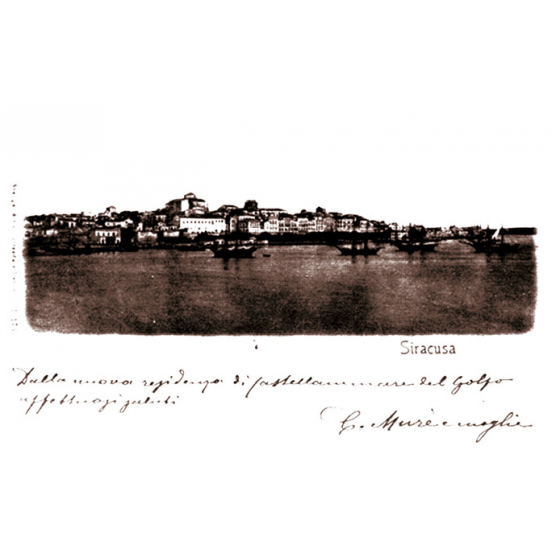 Siracusa
Dalla nuova residenza di Castellammare del Golfo
affettuosi saluti
C. Murè e moglie